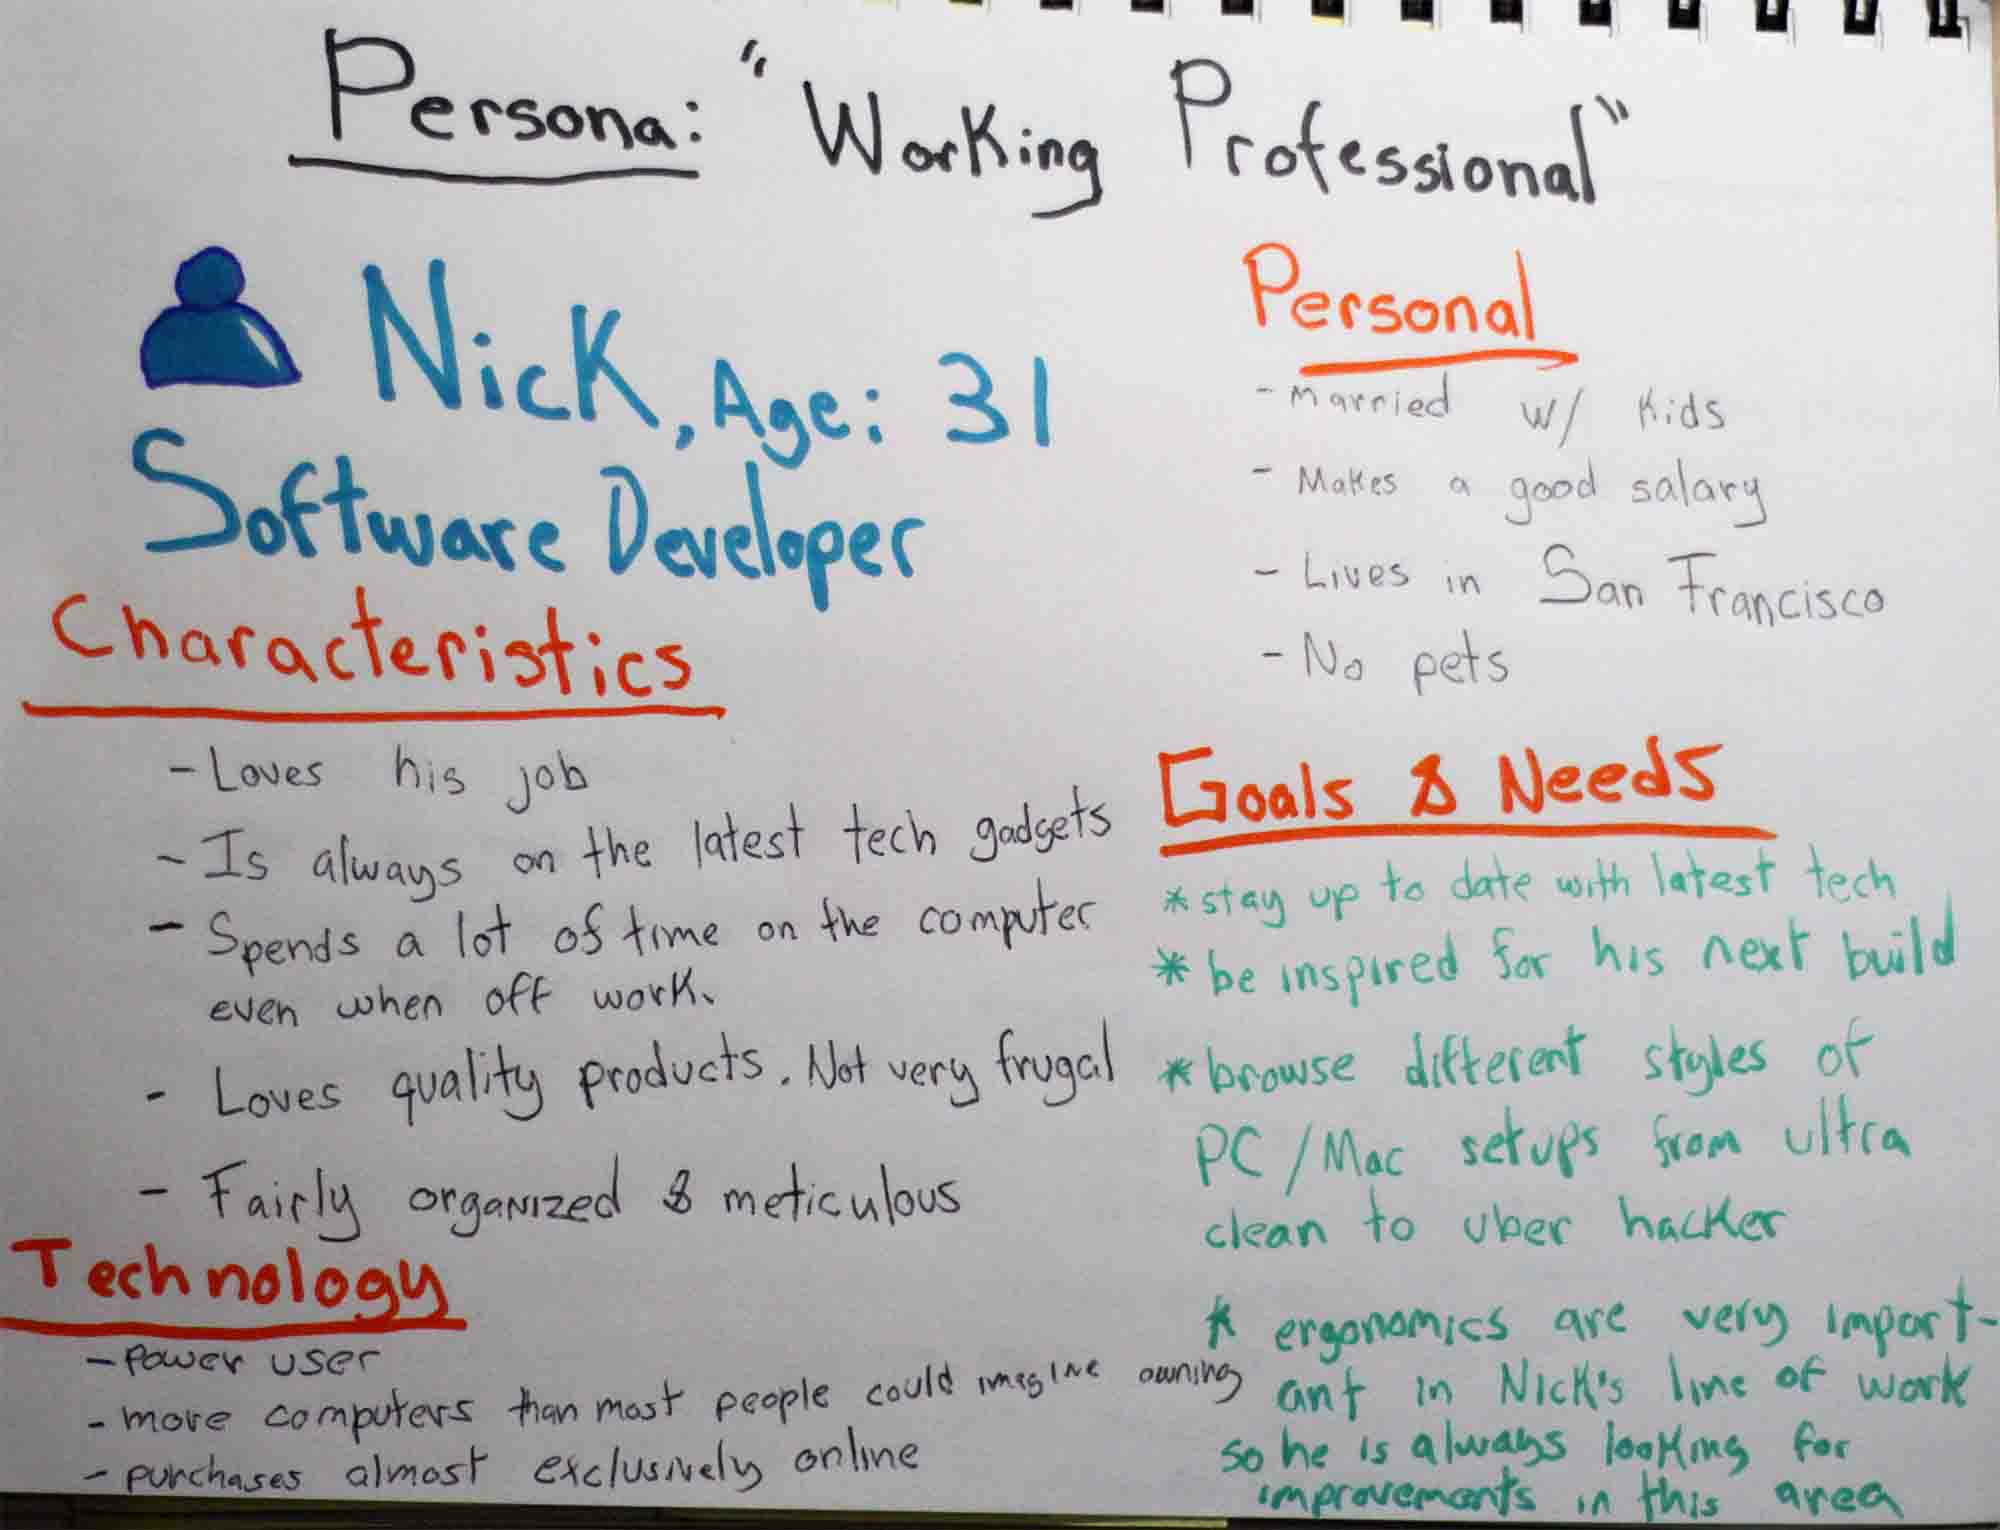 Persona: "Working Professional"
Nick, Age: 31
Software Developer
Characteristics
- Loves his job
- Is always on the latest tech gadgets
- Spends a lot of time on the computer
even when off work.
- Loves quality products. Not very frugal
- Fairly organized & meticulous
Technology
- power user
- more computers than most people could imagine owning
- purchases almost exclusively online
Personal
- Married w/ kids
- Makes a good salary
- Lives in San Francisco
- No pets
Goals & Needs
* stay up to date with latest tech
* be inspired for his next build
* browse different styles of
PC/Mac setups from ultra
clean to uber hacker
* ergonomics are very import-
ant in Nick's line of work
so he is always looking for
improvements in this area